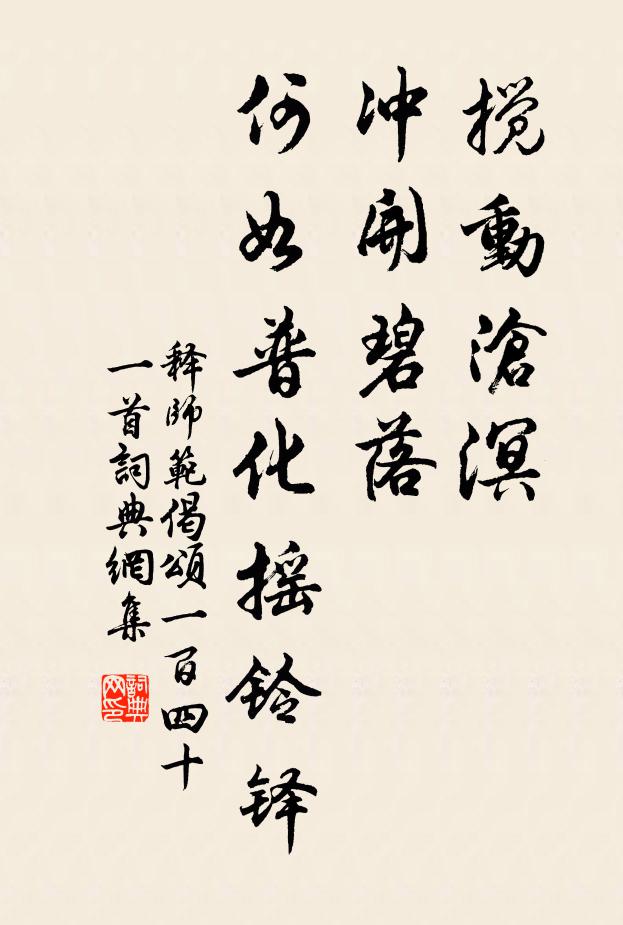 搅動滄溟
冲開碧落
何如普化摇铃铎
释師範偈頌一百四十
一首詞典網集
詞典
网印